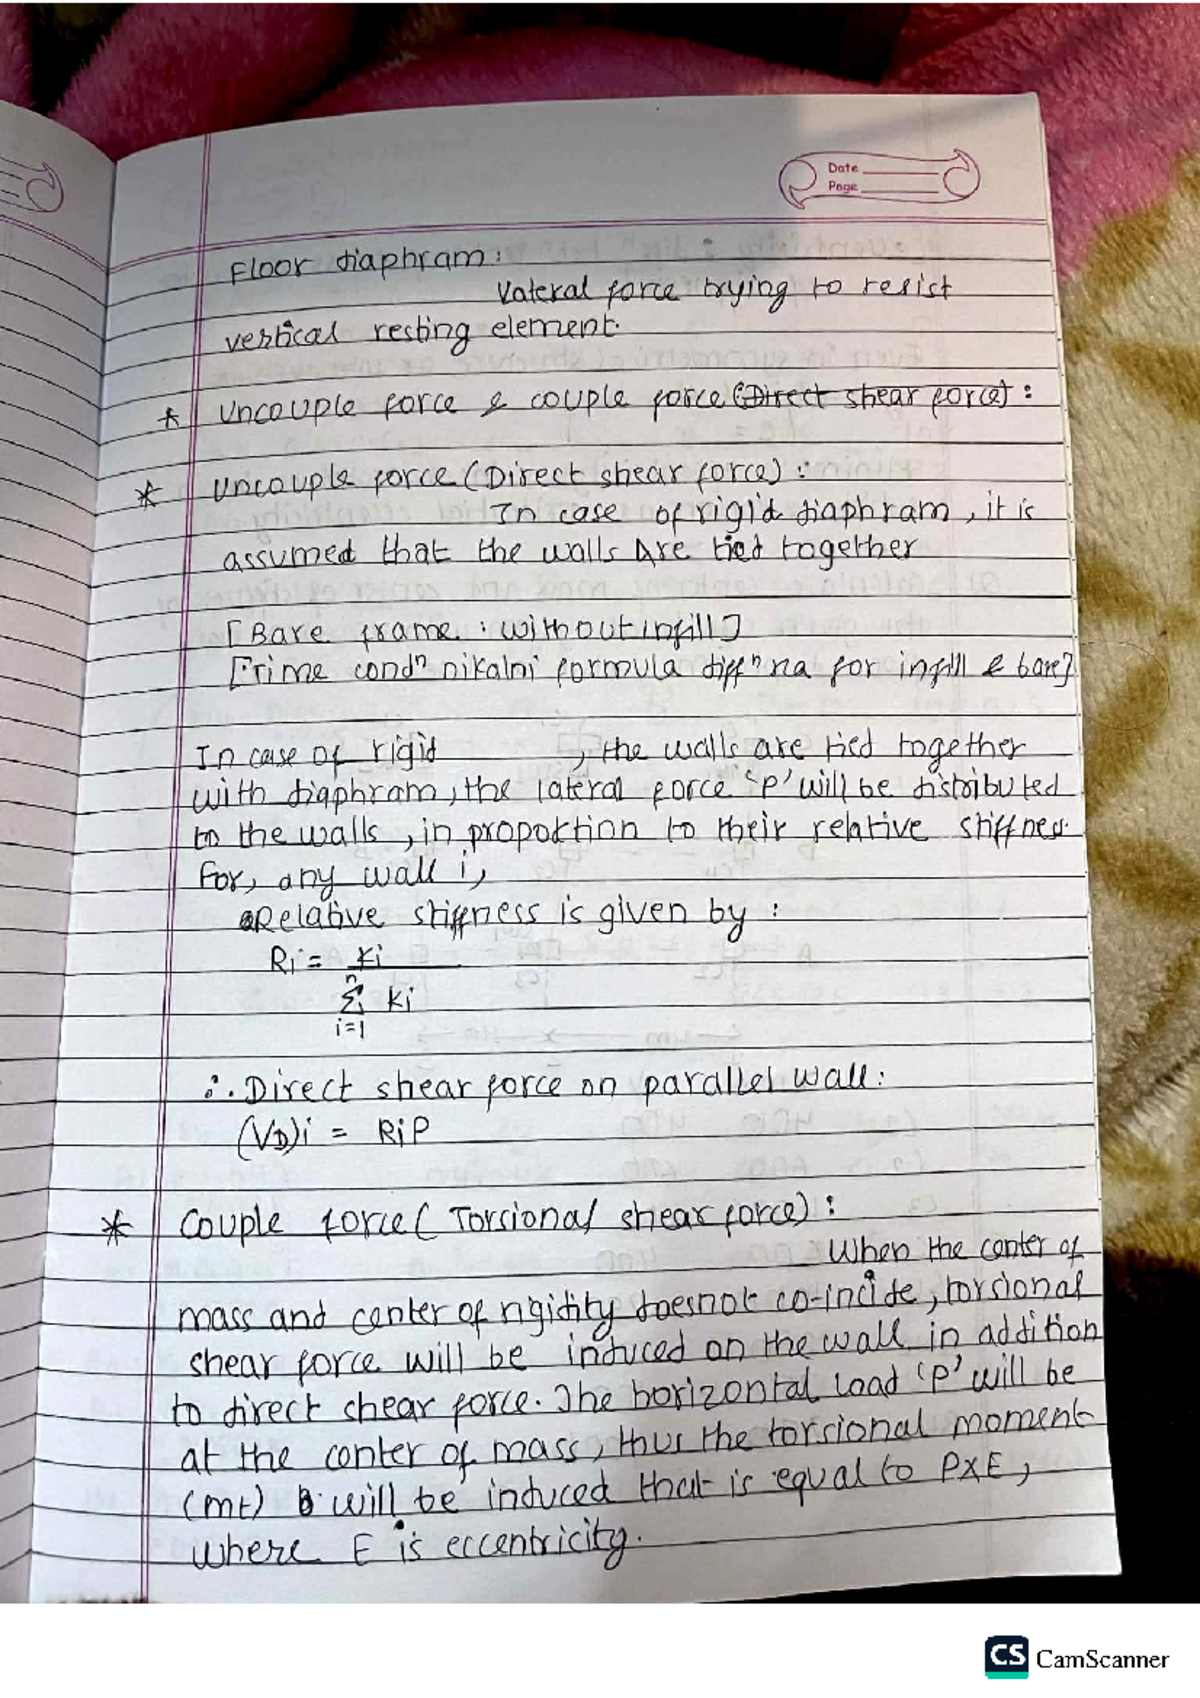 Date
Page
Floor diaphram:
Lateral force trying to resist
vertical resting element.
* Uncouple force & couple force (Direct shear force):
* Uncouple force (Direct shear force):
In case of rigid diaphram, it is
assumed that the walls Are tied together
[Bare frame : without infill]
[Time condⁿ nikalni formula diffⁿ na for infill & bare]
In case of rigid , the walls are tied together
with diaphram, the lateral force 'P' will be distributed
to the walls, in proportion to their relative stiffness.
For, any wall i,
Relative stiffness is given by :
Ri = ki
n
Σ ki
i=1
∴ Direct shear force on parallel wall:
(VD)i = RiP
* Couple force ( Torsional shear force) :
When the center of
mass and center of rigidity doesnot co-incide, torsional
shear force will be induced on the wall in addition
to direct shear force. The horizontal load 'P' will be
at the center of mass, thus the torsional moment
(mt) will be induced that is equal to PXE,
where E is eccentricity.
CS CamScanner